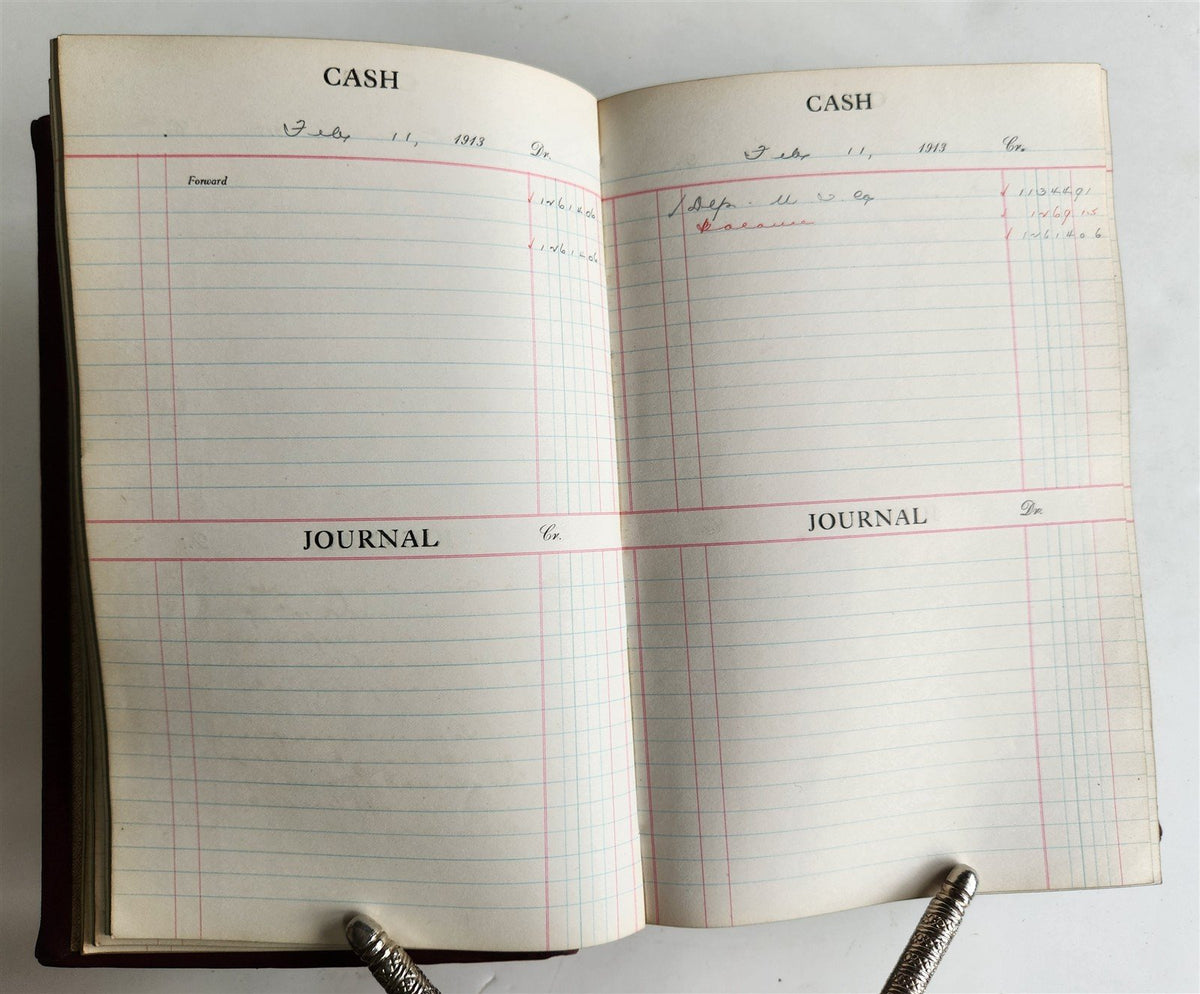 CASH
Feby 11, 1913 Dr.
Forward ✓ 12614 06
✓ 12614 06
JOURNAL Cr.
CASH
Feby 11, 1913 Cr.
✓ Dep. ✓ 11344 91
Balance ✓ 1269 15
✓ 12614 06
JOURNAL Dr.